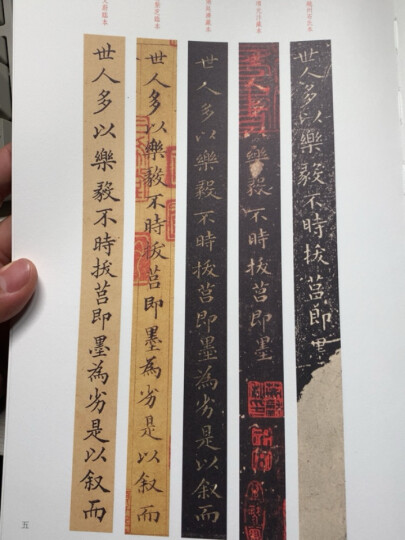 越州石氏本
世人多以樂毅不時拔莒即墨
世人多以樂毅不時拔莒即墨
世人多以樂毅不時拔莒即墨為劣是以叙而
臨本
世人多以樂毅不時拔莒即墨為劣是以叙而
臨本
世人多以樂毅不時拔莒即墨為劣是以叙而
五